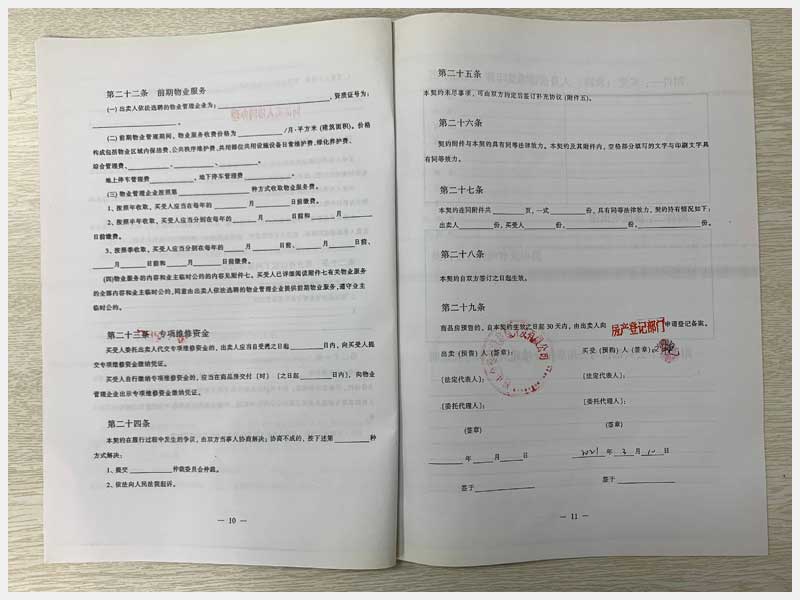 第二十二条 前期物业服务
(一) 出卖人依法选聘的物业管理企业为:____________,资质证号为:
____________。
(二) 前期物业管理期间,物业服务收费价格为________/月·平方米 (建筑面积)。价格
构成包括物业区域内保洁费、公共秩序维护费、共用部位共用设施设备日常维护费、绿化养护费、
综合管理费、________、________、________。
地上停车管理费________、地下停车管理费________。
(三) 物业管理企业按照第________种方式收取物业服务费。
1、按照年收取,买受人应当在每年的____月____日前缴费。
2、按照半年收取,买受人应当分别在每年的____月____日前和____月____
日前缴费。
3、按照季收取,买受人应当分别在每年的____月____日前、____月____日前、
____月____日前和____月____日前缴费。
(四)物业服务的内容和业主临时公约的内容见附件七。买受人已详细阅读附件七有关物业服务
的全部内容和业主临时公约,同意由出卖人依法选聘的物业管理企业提供前期物业服务,遵守业主
临时公约。
第二十三条 专项维修资金
买受人委托出卖人代交专项维修资金的,出卖人应当自受携之日起____日内,向买受人提
交专项维修资金缴纳凭证。
买受人自行缴纳专项维修资金的,应当在商品房交付〔时〕〔之日起____日内〕,向物业
管理企业出示专项维修资金缴纳凭证。
第二十四条
本契约在履行过程中发生的争议,由双方当事人协商解决;协商不成的,按下述第____种
方式解决:
1、提交________仲裁委员会仲裁。
2、依法向人民法院起诉。
— 10 —
第二十五条
本契约未尽事项,可由双方约定后签订补充协议(附件五)。
第二十六条
契约附件与本契约具有同等法律效力。本契约及其附件内,空格部分填写的文字与印刷文字具
有同等效力。
第二十七条
本契约连同附件共________页,一式________份,具有同等法律效力,契约持有情况如下:
出卖人________份,买受人________份,________份,________份。
第二十八条
本契约自双方签订之日起生效。
第二十九条
商品房预售的,自本契约生效之日起 30 天内,由出卖人向 房产登记部门 申请登记备案。
出卖 (预售) 人 (签章):
买受 (预购) 人 (签章):
[法定代表人]:
[法定代表人]:
[委托代理人]:
[委托代理人]:
(签章)
(签章)
____年____月____日
2021 年 3 月 10 日
签于________
签于________
— 11 —